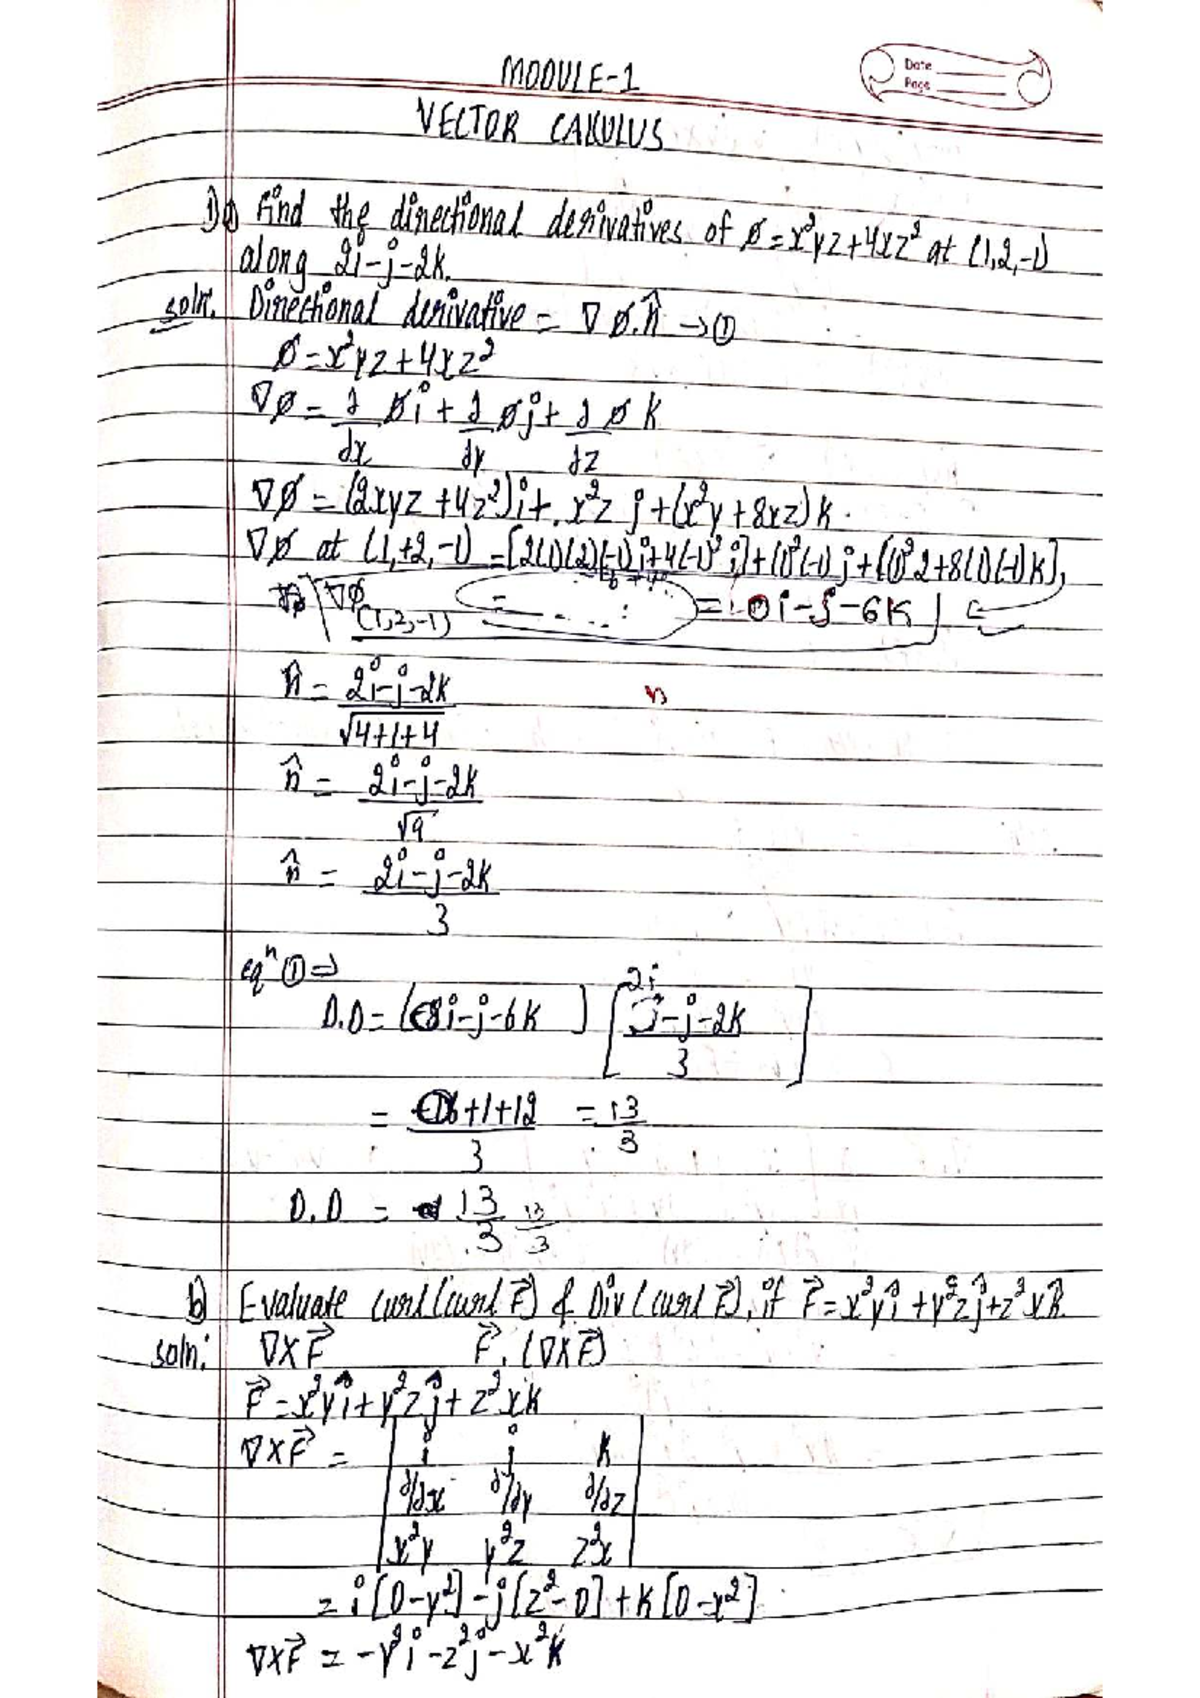 Date
Page
MODULE-1
VECTOR CALCULUS
1) a) Find the directional derivatives of ø=x²yz+4xz² at (1,2,-1)
along 2i-j-2k.
soln. Directional derivative = ∇ø.n̂ →①
ø=x²yz+4xz²
∇ø = ∂/∂x øi + ∂/∂y øj + ∂/∂z ø k
∇ø = (2xyz+4z²)i+ x²z j+(x²y+8xz)k.
∇ø at (1,+2,-1) = [2(1)(2)(-1)i+4(-1)² i]+(1)²(-1)j+((1)²2+8(1)(-1)k],
∇ø (1,2,-1) = 0i-j-6k
n̂ = 2i-j-2k/√4+1+4
n
n̂ = 2i-j-2k/√9
n̂ = 2i-j-2k/3
eqⁿ ①⇒
D.D = [8i-j-6k] [2i-j-2k/3]
= 16+1+12/3 = 13/3
D.D = 13/3 13/3
b) Evaluate curl(curl F⃗) & Div(curl F⃗), if F⃗=x²yî+y²zĵ+z²xk̂.
soln: ∇×F⃗ F⃗.(∇×F⃗)
F⃗=x²yî+y²zĵ+z²xk
∇×F⃗ = | i j k |
∂/∂x ∂/∂y ∂/∂z
x²y y²z z²x
= i[0-y²]-j[z²-0]+k[0-x²]
∇×F⃗ = -y²i-z²j-x²k